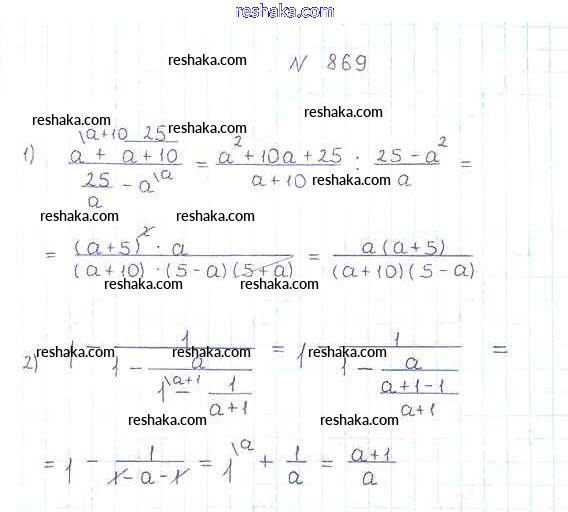 reshaka.com
reshaka.com
N 869
reshaka.com
reshaka.com
reshaka.com
1) (a^{\a+10} + 25/(a+10)) / (25/a - a^{\a}) = (a² + 10a + 25)/(a+10) : (25 - a²)/a =
reshaka.com
reshaka.com
reshaka.com
= ((a+5)² · a)/((a+10) · (5-a)(5+a)) = (a(a+5))/((a+10)(5-a))
reshaka.com
reshaka.com
reshaka.com
reshaka.com
reshaka.com
reshaka.com
2) 1 - 1/(1 - a/(1^{\a+1} - 1/(a+1))) = 1 - 1/(1 - a/((a+1-1)/(a+1))) =
reshaka.com
reshaka.com
= 1 - 1/(1-a-1) = 1^{\a} + 1/a = (a+1)/a
reshaka.com
reshaka.com